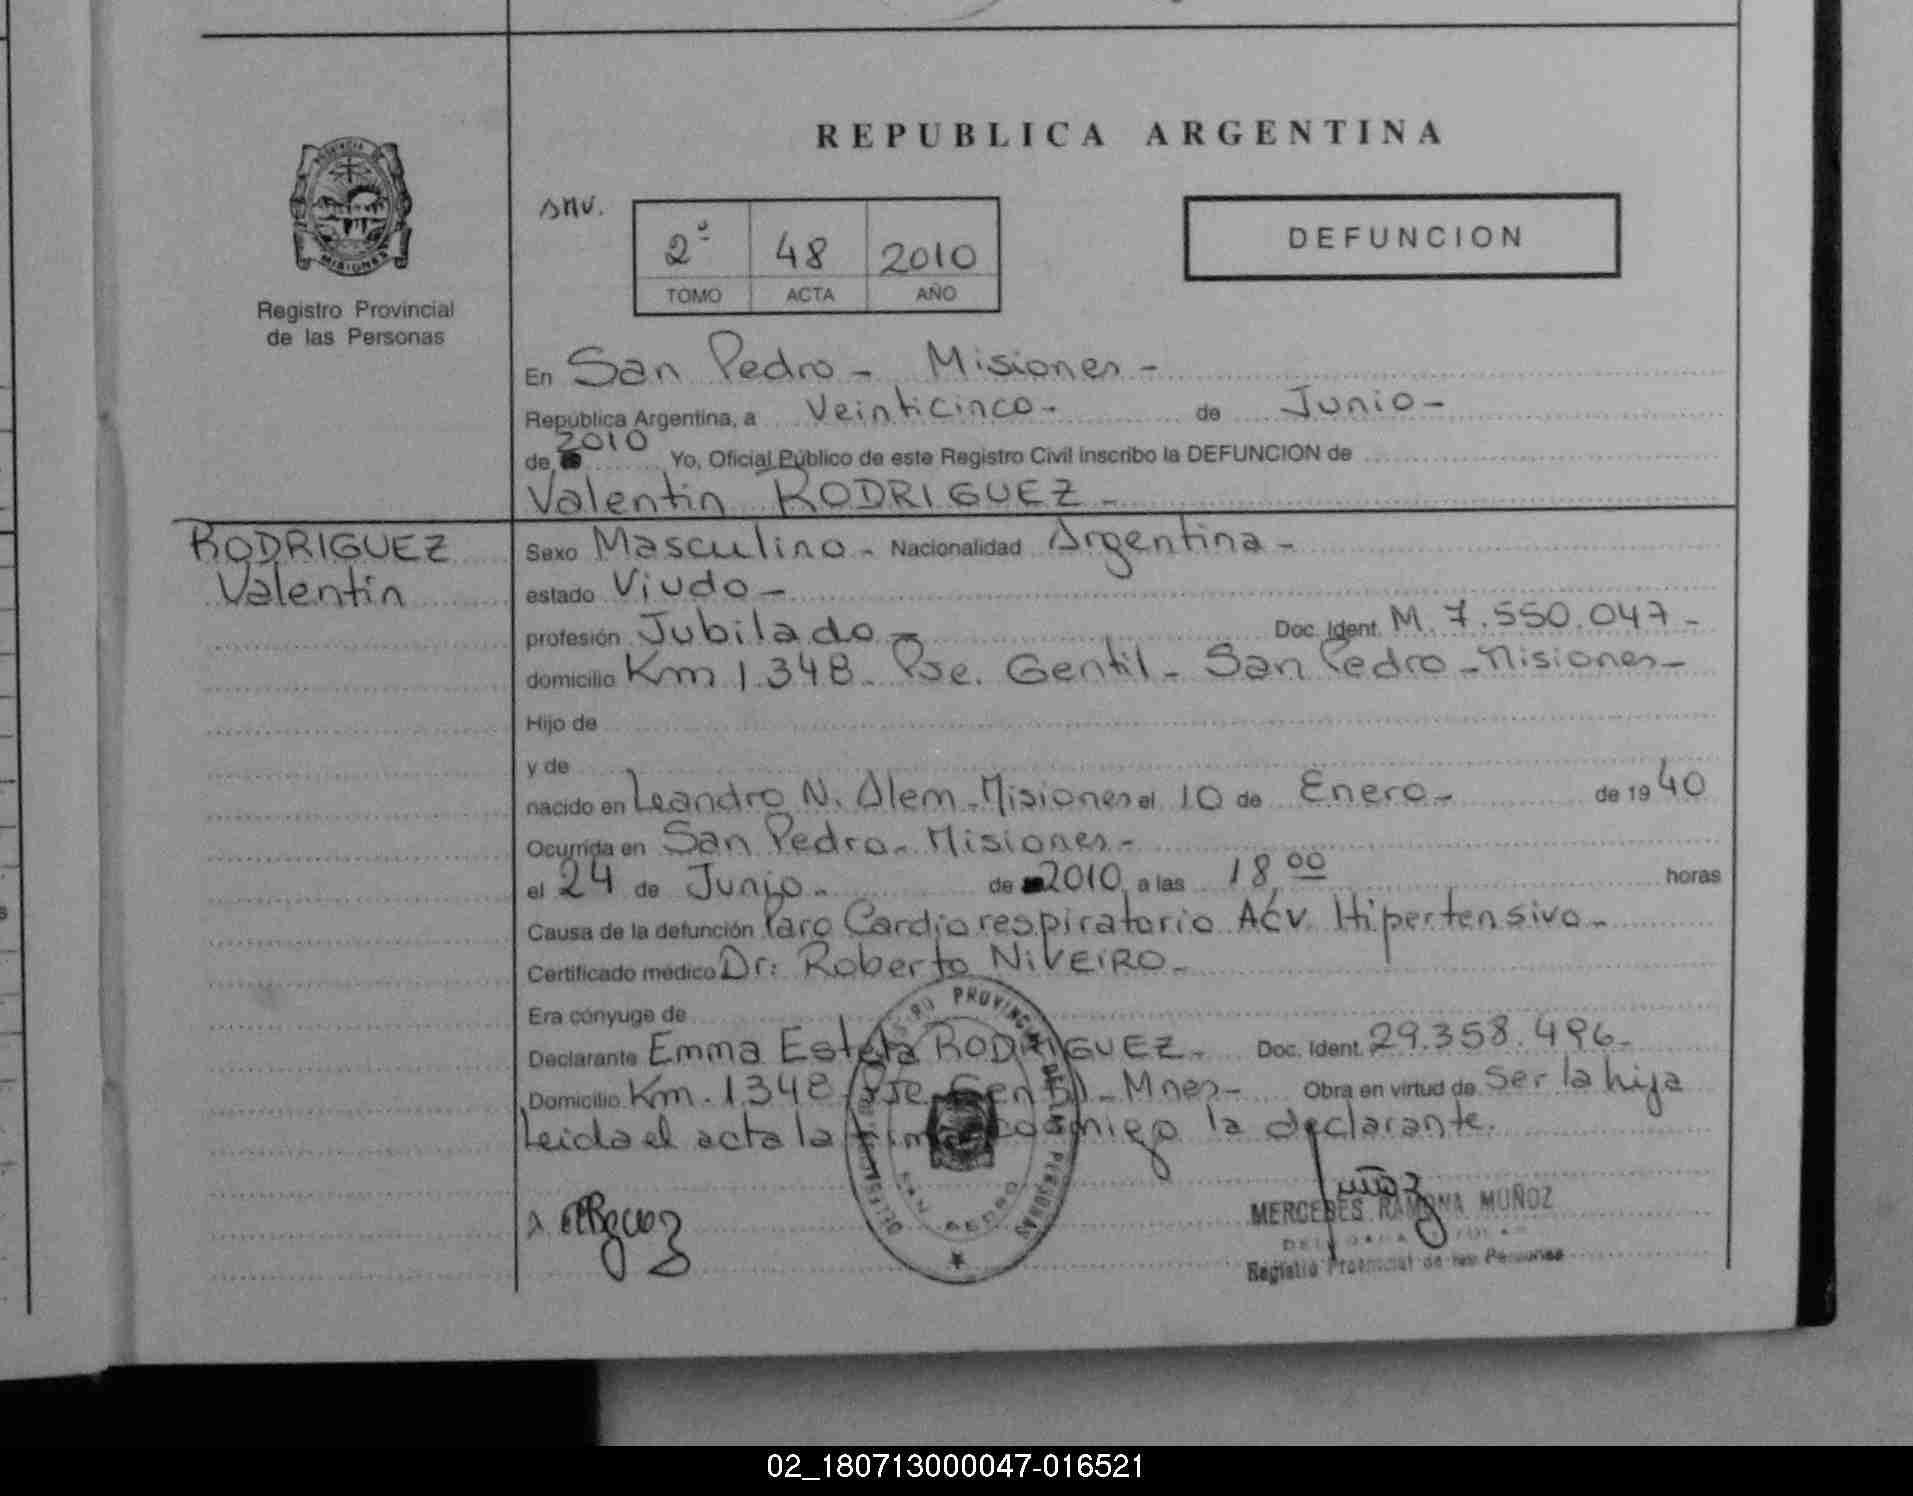 REPUBLICA ARGENTINA
PROVINCIA
MISIONES
Registro Provincial
de las Personas
SMV.
2º 48 2010
TOMO ACTA AÑO
DEFUNCION
En San Pedro - Misiones -
República Argentina, a Veinticinco - de Junio -
de 2010 Yo, Oficial Público de este Registro Civil inscribo la DEFUNCION de
Valentin RODRIGUEZ -
RODRIGUEZ
Valentín
Sexo Masculino - Nacionalidad Argentina -
estado Viudo -
profesión Jubilado - Doc. Ident. M. 7.550.047 -
domicilio Km 1.348 - Pje. Gentil - San Pedro - Misiones -
Hijo de
y de
nacido en Leandro N. Alem - Misiones el 10 de Enero - de 1940
Ocurrida en San Pedro - Misiones -
el 24 de Junio - de 2010 a las 18,00 horas
Causa de la defunción Paro Cardiorespiratorio Acv Hipertensivo -
Certificado médico Dr: Roberto NIVEIRO -
Era cónyuge de
Declarante Emma Estela RODRIGUEZ - Doc. Ident. 29.358.496 -
Domicilio Km. 1348 Pje Gentil - Mnes - Obra en virtud de Ser la hija
Leida el acta la firma conmigo la declarante.
PROVINCIAL DE LAS PERSONAS
SAN PEDRO
MERCEDES RAMONA MUÑOZ
Registro Provincial de las Personas
02_180713000047-016521